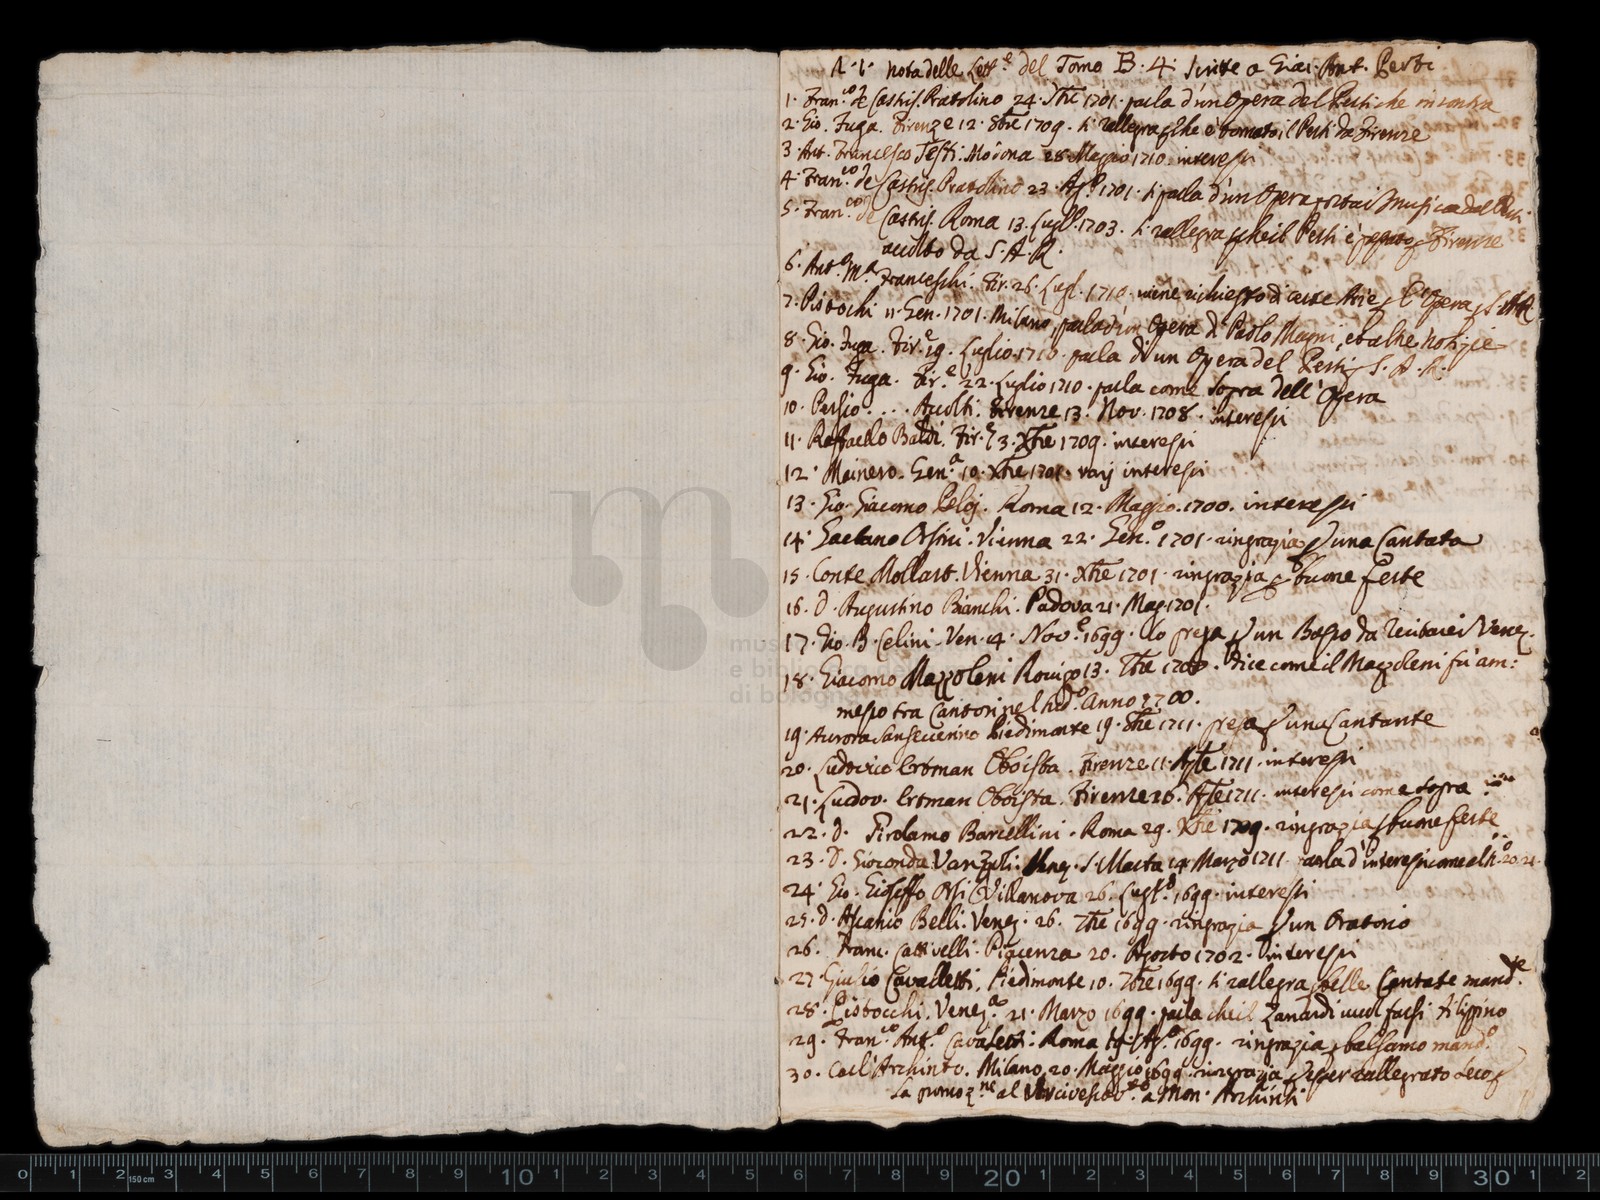 nota delle Lett.e del Tomo B. 4. scritte a Giac. Ant. Perti
1. Fran.co de Castris. Pratolino 24. 7bre 1701. parla d'un Opera del Perti che incontra
2. Gio. Fuga. Firenze 12. 8bre 1709. si rallegra che è tornato il Perti da Firenze
3. Ant. Francesco Testi. Modona 28 Maggio 1710. interessi
4. Fran.co de Castris. Pratolino 23. Ag.o 1701. si parla d'un Opera Musica del
5. Fran.co de Castris. Roma 13. Lugl. 1703. si rallegra che il Perti è Firenze
accolto da S. A. R.
6. Ant.o M.a Franceschi. Fir. 26. Lugl. 1710. viene richiesto di certe Arie p l'Opera p S. A. R.
7. Pistocchi 11. Gen. 1701. Milano, parla d'un Opera di Paolo Magni, et altre notizie
8. Gio. Fuga. Fir.e 19. Luglio 1710. parla di un Opera del Perti p S. A. R.
9. Gio. Fuga. Fir.e 22. Luglio 1710. parla come sopra dell'Opera
10. . . . Accolti. Firenze 13. Nov. 1708. interessi
11. Raffaello Baldi. Fir.e 3. Xbre 1709. interessi
12. Mainero. Gen.a 10. Xbre 1701. varij interessi
13. Gio. Giacomo Roma 12. Maggio. 1700. interessi
14. Gaetano Orsini. Vienna 22. Gen.o 1701. ringrazia p una Cantata
15. Conte Mollart. Vienna 31. Xbre 1701. ringrazia p buone feste
16. D. Augustino Bianchi. Padova 21. Mag. 1701.
17. Gio. B. Celini. Ven. 14. Nov.e 1699. lo prega p un Basso da recitare
18. Giacomo Mazzoleni Rovigo 13. 7bre 1700. dice come il Mazzoleni fù am:
messo tra Cantori nel Anno 1700.
19. Aurora Sanseverino Piedimonte 19. 8bre 1711. prega p una Cantante
20. Ludovico Ertman Oboista. Firenze. 11. 1711. interessi
21. Ludov. Ertman Oboista. Firenze 26. 1711. interessi come sopra
22. D. Girolamo Barcellini. Roma 29. Xbre 1709. ringrazia p buone feste
23. D. Gioconda Venez. S. Marta 14 Marzo 1711. parla d'interessi come alli n.o 20. 21.
24. Gio. Gioseffo Orsi Villanova 26. Lugl.o 1699. interessi
25. D. Ascanio Belli. Venez. 26. 7bre 1699. ringrazia p un Oratorio
26. Franc. Cattivelli. Piacenza 20. Agosto 1702. interessi
27. Giulio Cavalletti. Piedimonte 10. 7bre 1699. si rallegra p belle Cantate mand.te
28. Pistocchi. Venez.a 21. Marzo 1699. parla che il Zanardi vuol farsi Filippino
29. Fran.co Ant.o Cavaletti. Roma 19. Ag.o 1699. ringrazia p balsamo mand.o
30. Co: Archinto. Milano, 20. Maggio 1699. ringrazia rallegrato seco p
la promoz.ne al a Mon. Archinti